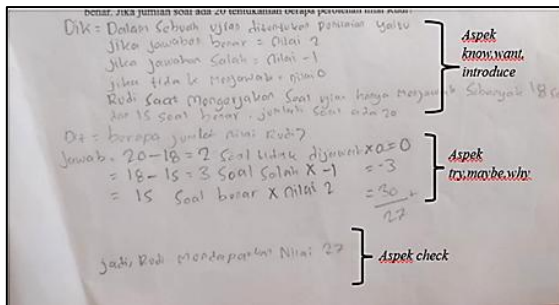 benar. Jika jumlah soal ada 20 tentukanlah berapa perolehan nilai Rudi?
Dik = Dalam Sebuah ujian ditentukan penilaian yaitu
jika jawaban benar = nilai 2
jika jawaban salah = nilai -1
jika tidak menjawab = nilai 0
Rudi saat mengerjakan soal ujian hanya menjawab sebanyak 18 soal
dan 15 soal benar. jumlah soal ada 20
Aspek
know,want,
introduce
Dit = berapa jumlah nilai Rudi?
Jawab = 20-18 = 2 soal tidak dijawab x 0 = 0
= 18-15 = 3 soal salah x -1 = -3
= 15 soal benar x nilai 2 = 30 +
27
Aspek
try,maybe,why
jadi, Rudi mendapatkan Nilai 27
Aspek check